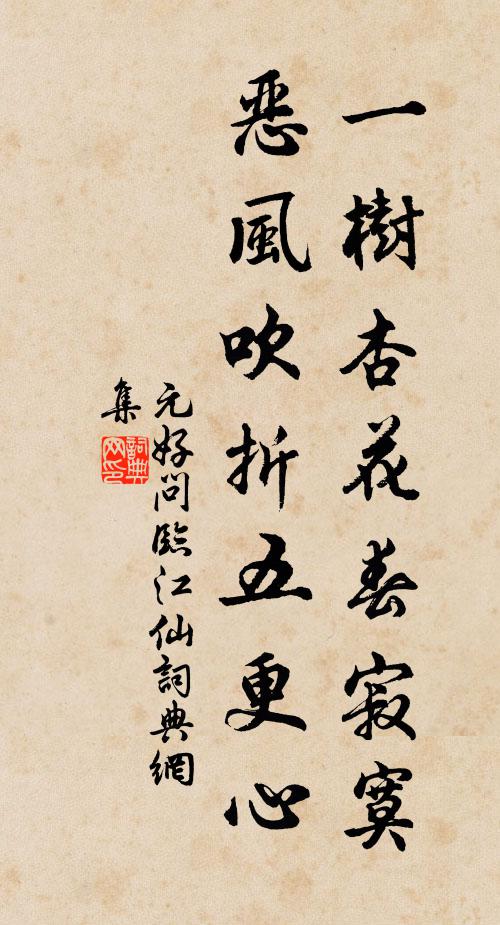 一樹杏花春寂寞
惡風吹折五更心
元好問臨江仙詞典網
集
詞典網印